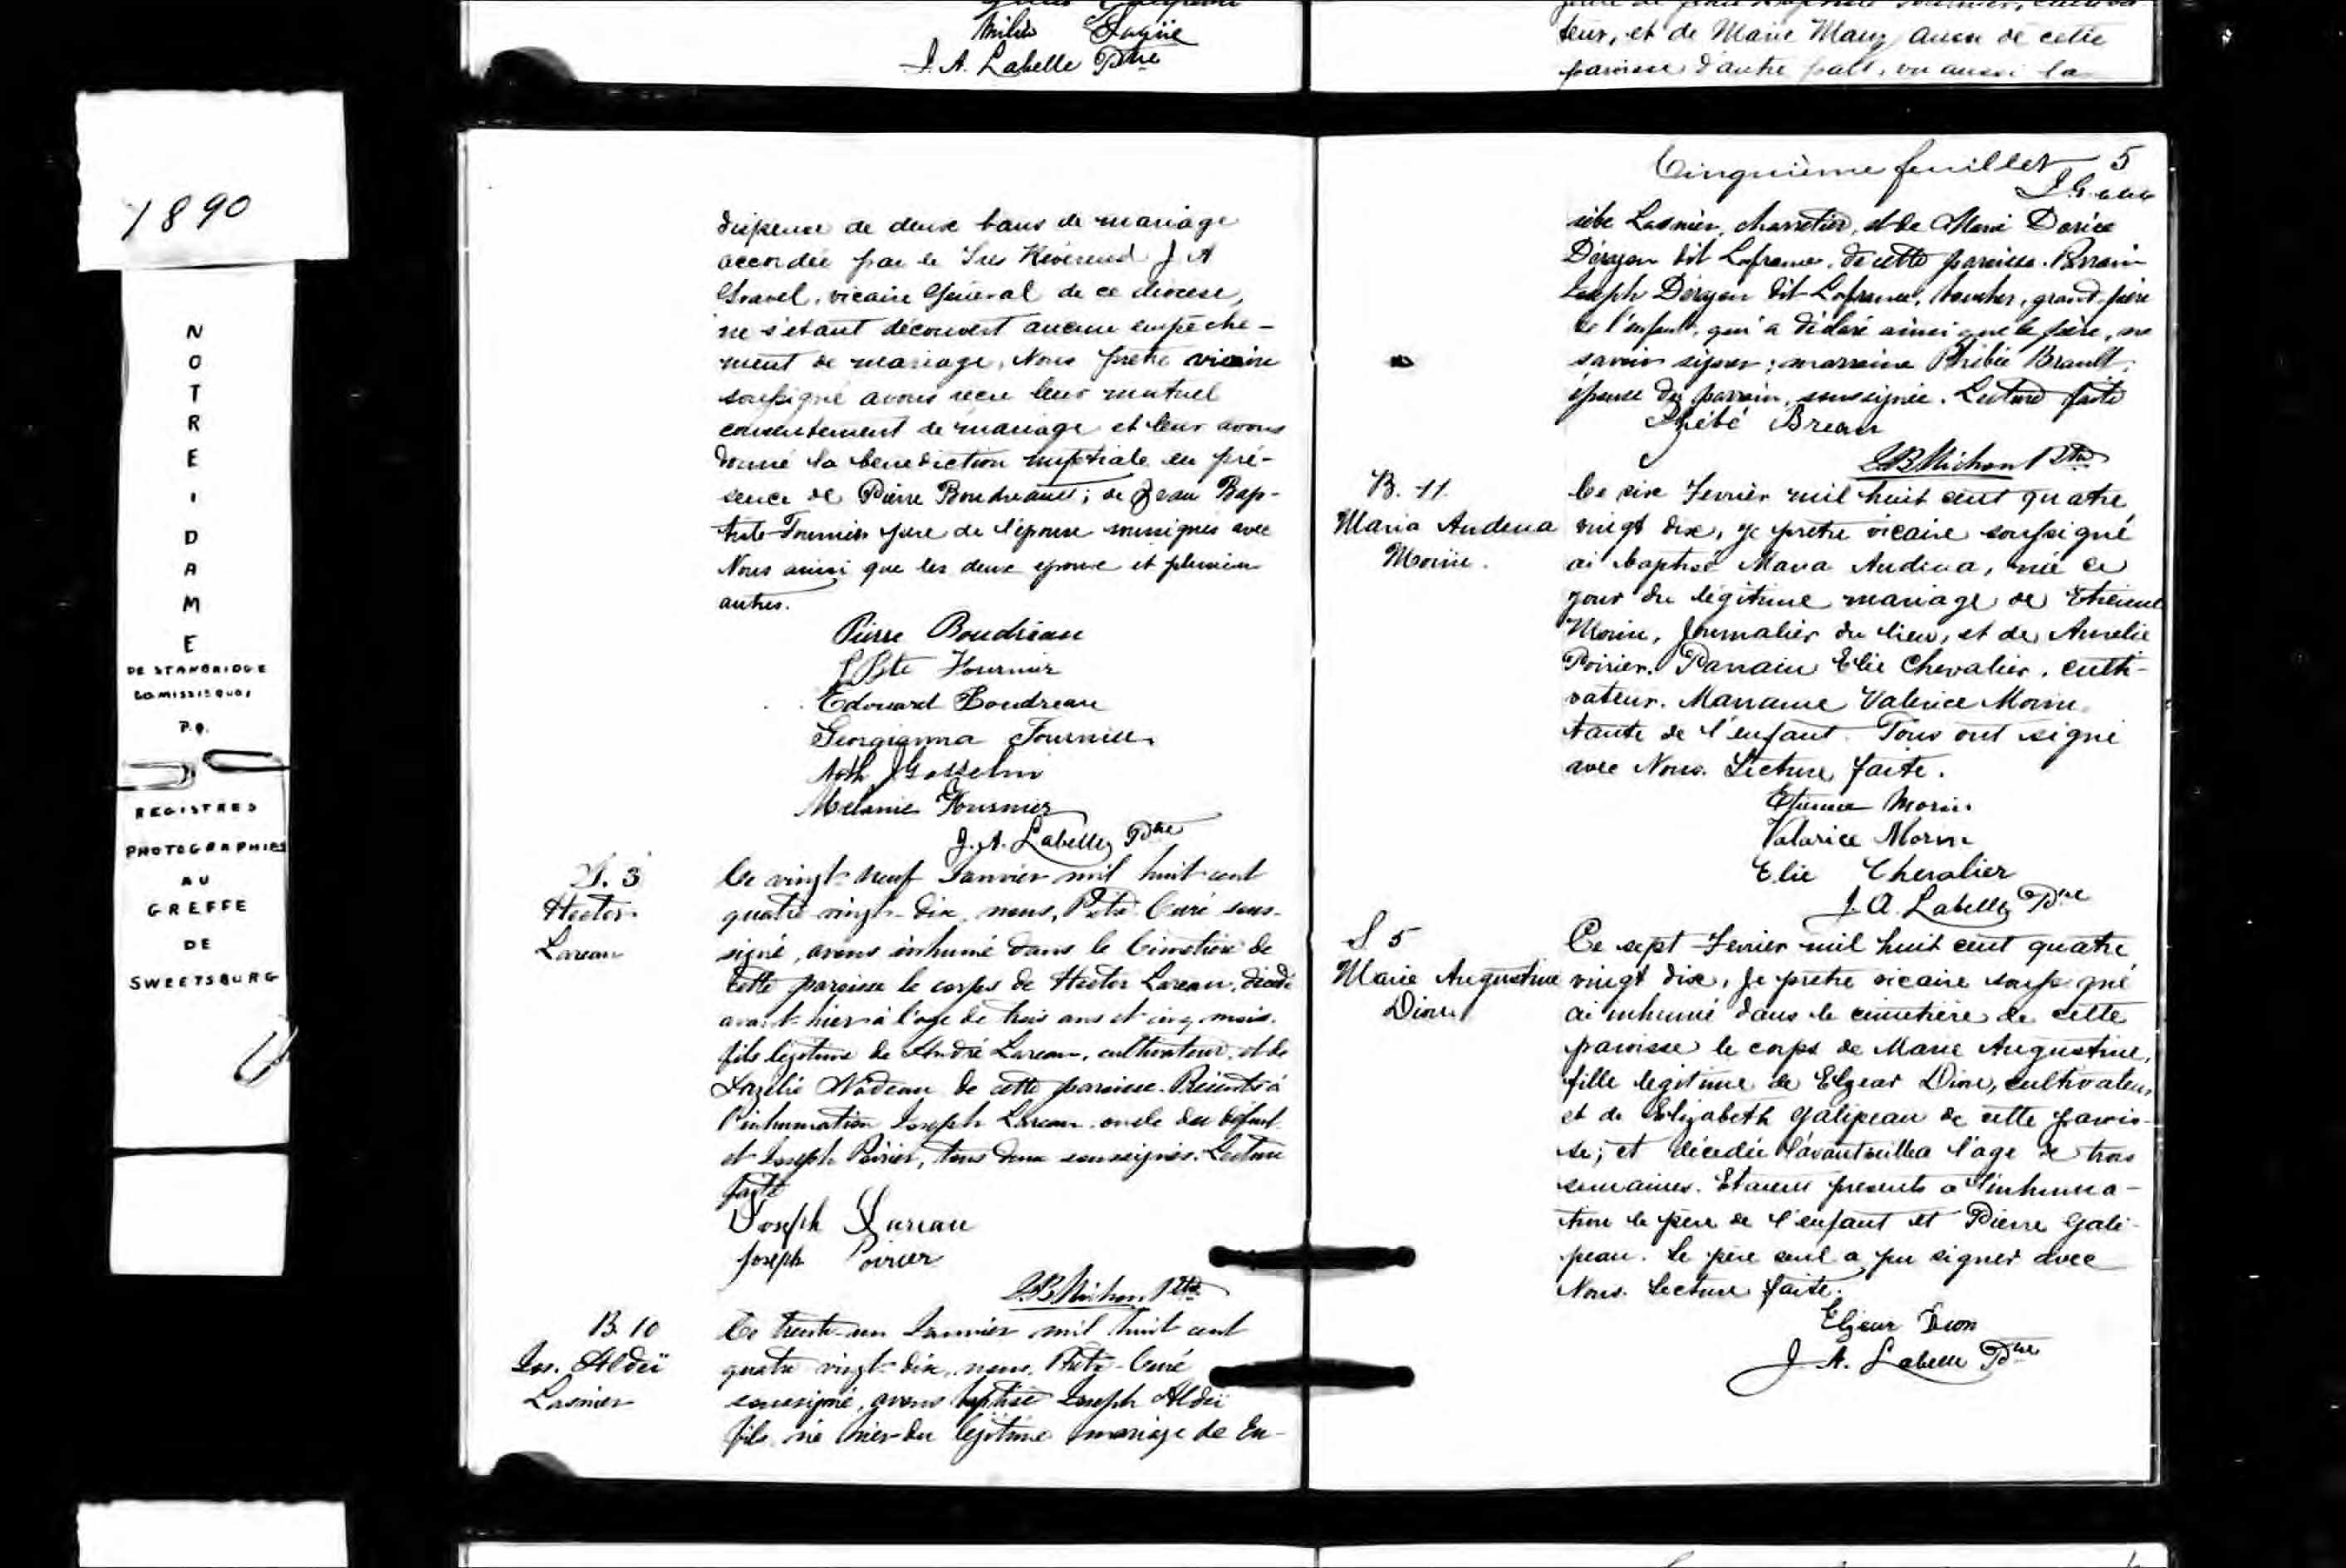 Milie Gagnée
J. A. Labelle Ptre
teur, et de Marie Many aussi de cette
paroisse d'autre part, vu aussi la
1890
NOTRE-DAME
DE STANBRIDGE
CO MISSISQUOI
P.Q.
REGISTRES
PHOTOGRAPHIES
AU
GREFFE
DE
SWEETSBURG
dispense de deux bans de mariage
accordée par le Très Révérend J A
Gravel, vicaire Général de ce diocese,
ne s'etant découvert aucun empeche-
ment de mariage, Nous pretre vicaire
soussigné avons recu leur mutuel
consentement de mariage et leur avons
donné la benediction nuptiale en pré-
sence de Pierre Boudreault; de Jean Bap-
tiste Fournier pere de l'épouse soussignés avec
Nous ainsi que les deux epoux et plusieurs
autres.
Pierre Boudreau
J Bte Fournier
Edouard Boudreau
Georgianna Fournier
Gosselin
Melanie Fournier
J. A. Labelle Ptre
S. 3
Hector
Lareau
Ce vingt-neuf Janvier mil huit cent
quatre-vingt-dix, nous, Prêtre Curé sous-
signé, avons inhumé dans le Cimetière de
cette paroisse le corps de Hector Lareau, décédé
avant-hier à l'age de trois ans et cinq mois,
fils légitime de André Lareau, cultivateur, et de
Nadeau de cette paroisse. Présents à
l'inhumation Joseph Lareau oncle du défunt
et Joseph Poirier, tous deux soussignés. Lecture
faite
Joseph Lareau
Joseph Poirier
J.B. Michon Ptre
B. 10
Jos. Aldéï
Lasnier
Ce trente-un Janvier mil huit cent
quatre vingt-dix, nous, Prêtre-Curé
soussigné, avons baptisé Joseph Aldéï
fils né hier du légitime mariage de Eu-
Cinquième feuillet 5
sèbe Lasnier, charretier, et de Marie Dorice
Dérajen dit Lafrance, de cette paroisse. Parrain
Joseph Dérajen dit Lafrance, boucher, grand-père
de l'enfant, qui a déclaré ainsi que le père, ne
savoir signer; marraine Phébée Brault,
épouse du parrain, soussignée. Lecture faite
Phébé Breau
J.B. Michon Ptre
B. 11.
Maria Audena
Morin.
Ce six Fevrier mil huit cent quatre
vingt dix, je pretre vicaire soussigné
ai baptisé Maria Audina, née ce
jour du légitime mariage de Etienne
Morin, Journalier du lieu, et de Aurelie
Poirier. Parrain Elie Chevalier, culti-
vateur. Marraine Valerice Morin
tante de l'enfant. Tous ont signé
avec Nous. Lecture faite.
Etienne Morin
Valarice Morin
Elie Chevalier
J. A. Labelle Ptre
S 5
Marie Augustine
Dion
Ce sept Fevrier mil huit cent quatre
vingt dix, Je pretre vicaire soussigné
ai inhumé dans le cimetière de cette
paroisse le corps de Marie Augustine,
fille legitime de Elzear Dion, cultivateur
et de Elizabeth Galipeau de cette parois-
se; et décedée l'avantveille a l'age de trois
semaines. Etaient presents a l'inhuma-
tion le père de l'enfant et Pierre Gali-
peau. Le père seul a pu signer avec
Nous. Lecture faite.
Elzear Dion
J. A. Labelle Ptre